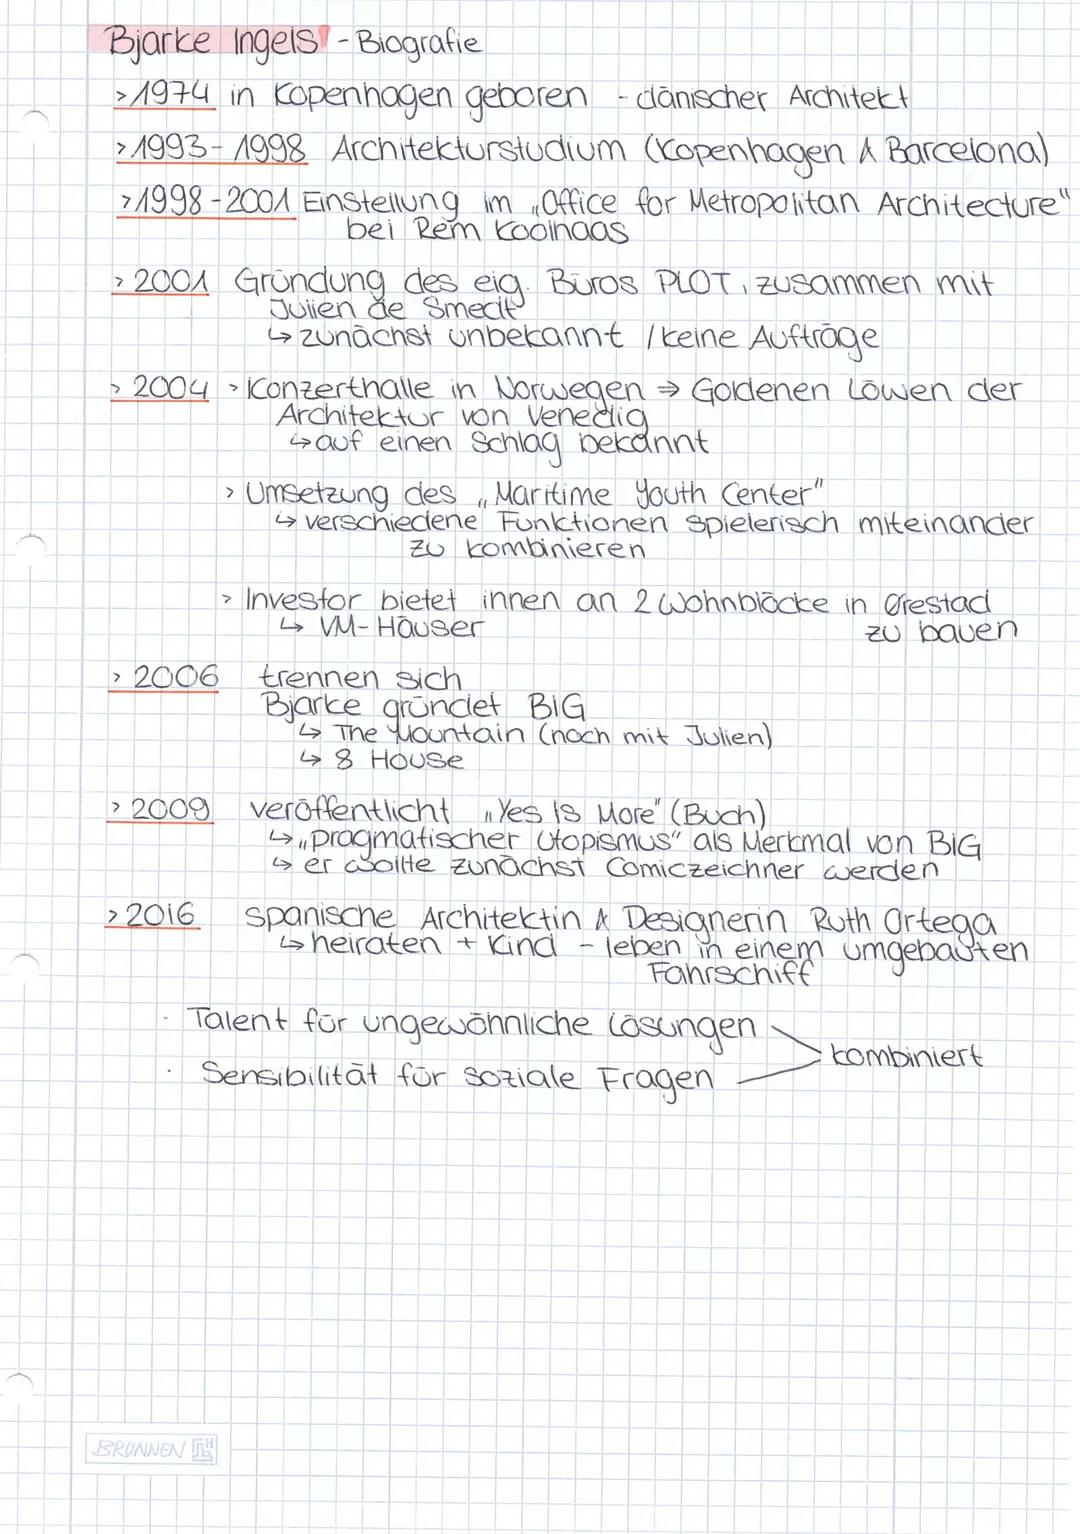 Bjarke Ingels - Biografie
> 1974 in Kopenhagen geboren - dänischer Architekt
> 1993-1998 Architekturstudium (Kopenhagen & Barcelona)
> 1998-2001 Einstellung im „Office for Metropolitan Architecture"
bei Rem Koolhaas
> 2001 Gründung des eig. Büros PLOT, zusammen mit
Julien de Smedt
↳ zunächst unbekannt / keine Aufträge
> 2004 > Konzerthalle in Norwegen ⇒ Goldenen Löwen der
Architektur von Venedig
↳ auf einen Schlag bekannt
> Umsetzung des „Maritime Youth Center"
↳ verschiedene Funktionen spielerisch miteinander
zu kombinieren
> Investor bietet ihnen an 2 Wohnblöcke in Ørestad
↳ VM-Häuser zu bauen
> 2006 trennen sich
Bjarke gründet BIG
↳ The Mountain (noch mit Julien)
↳ 8 House
> 2009 veröffentlicht „Yes Is More" (Buch)
↳ „pragmatischer Utopismus" als Merkmal von BIG
↳ er wollte zunächst Comiczeichner werden
> 2016 spanische Architektin & Designerin Ruth Ortega
↳ heiraten + Kind - leben in einem umgebauten
Fährschiff
· Talent für ungewöhnliche Lösungen
> kombiniert
· Sensibilität für soziale Fragen
BRUNNEN